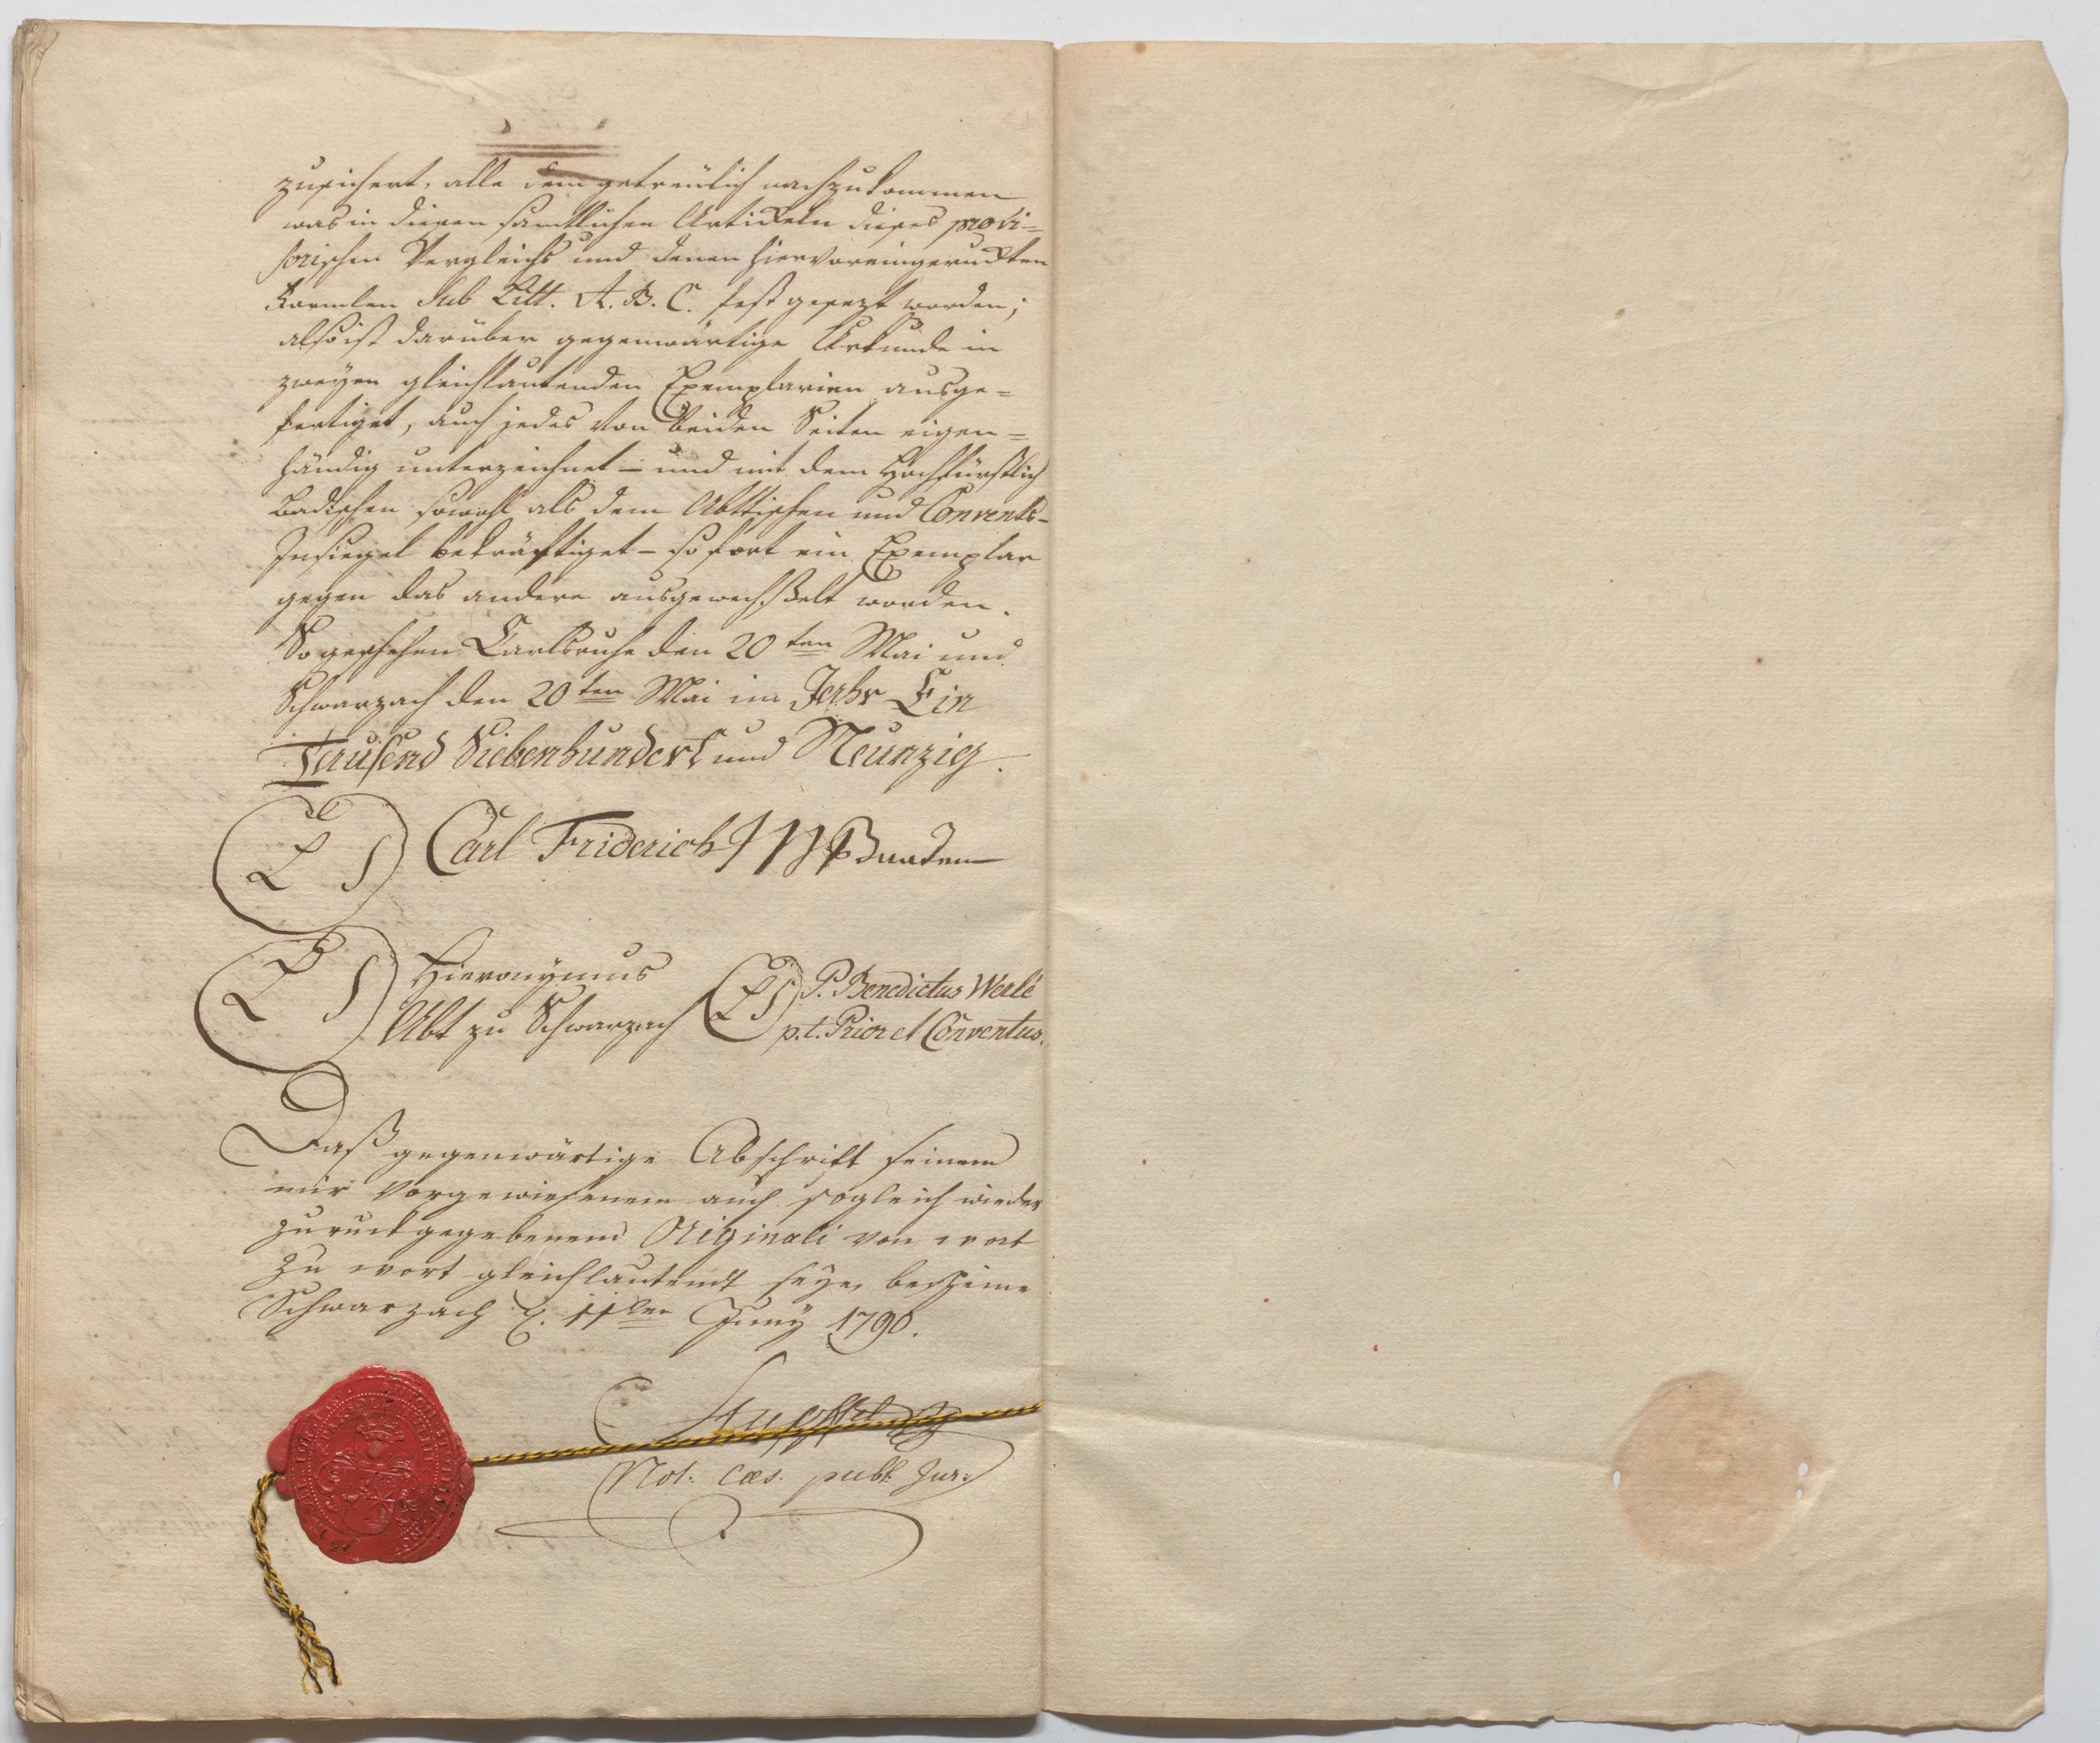 zusichert, alle dem getreülich nachzukommen
was in diesen samtlichen Articeln dieses provi=
sorischen Vergleichs und denen hiervoreingeruckten
Formlen sub Litt. A. B. C. fest gesezt worden;
also ist darüber gegenwärtige Urkunde in
zweyen gleichlautenden Exemplarien ausge=
fertiget, auch jedes von beiden Seiten eigen=
händig unterzeichnet – und mit dem Hochfürstlich
Badischen sowohl als dem Abttischen und Convents-
Insiegel bekräftiget – sofort ein Exemplar
gegen das andere ausgewechßelt worden.
So geschehen Carlsruhe den 20ten Mai und
Schwarzach den 20ten Mai im Jahr Ein
Tausend Siebenhundert und Neunzig.
L S Carl Friderich M z Baaden
L S Hieronymus
Abt zu Schwarzach
L S P. Benedictus Werlé
p.t. Prior et Conventus.
Daß gegenwärtige Abschrift seinem
mir vorgewiesenem auch sogleich wieder
zuruckgegebenem Originali von wort
zu wort gleichlautendt seye, bescheine
Schwarzach d. 11ten Juny 1790.
Not: Cæs. publ: Jur: